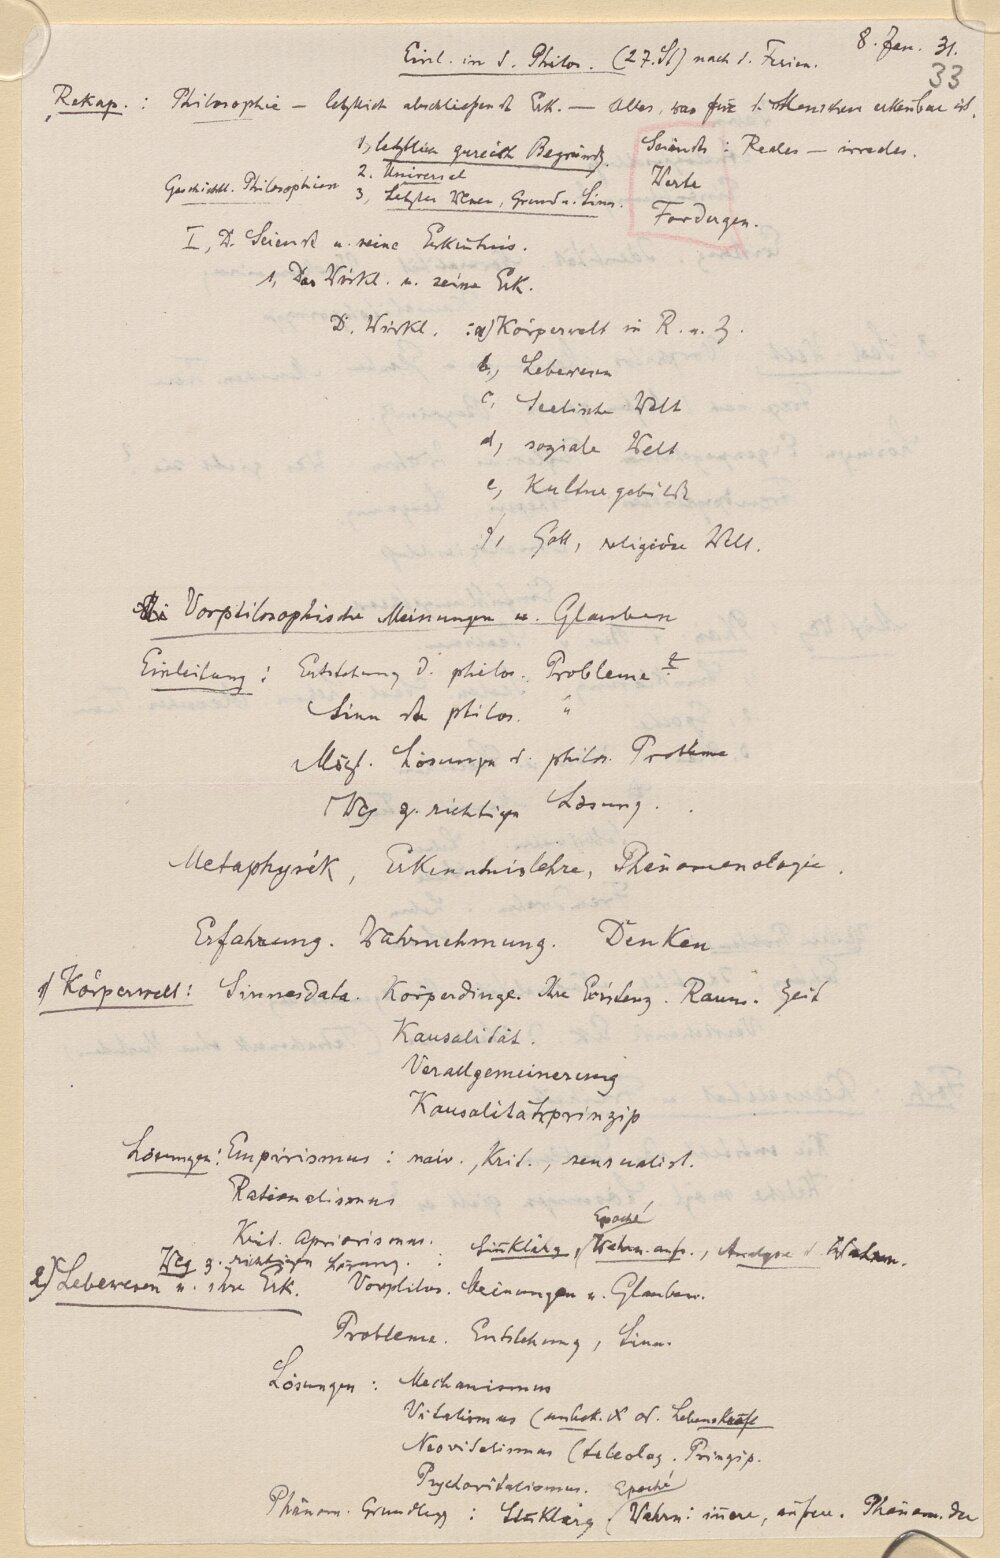 8. Jan. 31.
33
Einl. in d. Philos. (27. St) nach d. Ferien.
Rekap. : Philosophie – letztlich abschließende Erk. – Alles, was für d. Menschen erkennbar ist.
1, letztlich gereicht Begründg. Seiendes : Reales – irreales.
Geschichtl. Philosophieen 2. Universal Werte
3, Letztes Wesen, Grund u. Sinn. Fordergen.
I, D. Seiende u. seine Erkenntnis.
1, Das Wirkl. u. seine Erk.
D. Wirkl. : a) Körperwelt in R. u. Z.
b, Lebewesen
c, Seelische Welt
d, soziale Welt
e, Kulturgebilde
f, Gott, religiöse Welt.
Vorphilosophische Meinungen u. Glauben
Einleitung : Entstehung d. philos. Probleme
Sinn der philos. "
Mögl. Lösungen d. philos. Probleme
Weg z. richtigen Lösung.
Metaphysik, Erkenntnislehre, Phänomenologie.
Erfahrung. Wahrnehmung. Denken
1) Körperwelt : Sinnesdata. Körperdinge. Ihre Existenz. Raum. Zeit
Kausalität.
Verallgemeinerung
Kausalitätsprinzip
Lösungen : Empirismus : naiv., Krit., sensualist.
Rationalismus
Epoché
Krit. Apriorismus.
Weg z. richtigen Lösung. : Wahrn. auf., Analyse d. Wahrn.
2) Lebewesen u. ihre Erk. Vorphilos. Meinungen u. Glauben.
Probleme. Entstehung, Sinn.
Lösungen : Mechanismus
Vitalismus (unbek. X od. Lebenskraft
Neovitalismus (teleolog. Prinzip.
Psychovitalismus. Epoché
Phänom. Grundlegg : (Wahrn : innere, äußere. Phänom. der